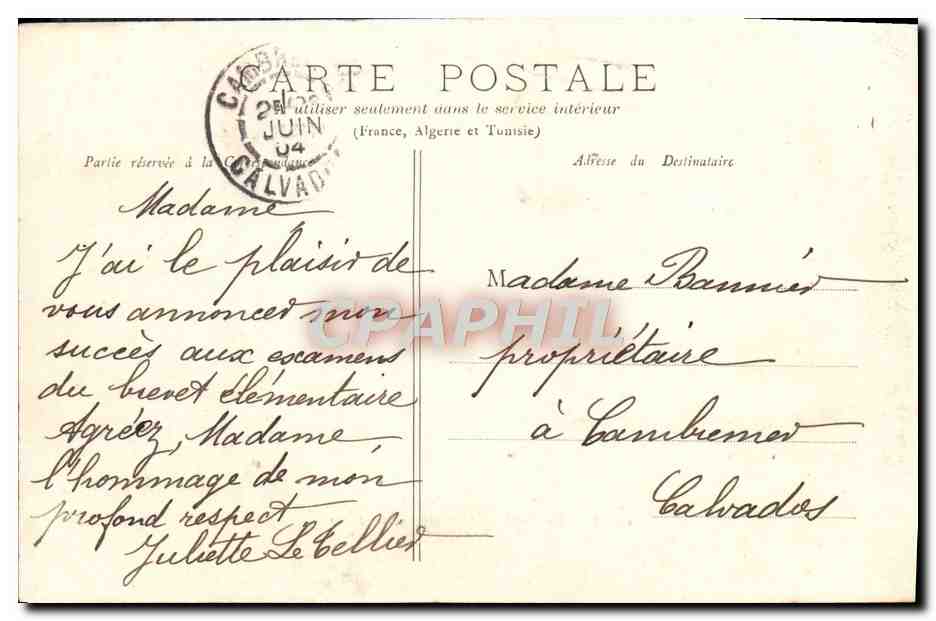 CARTE POSTALE
A utiliser seulement dans le service intérieur
(France, Algerie et Tunisie)
Partie réservée à la Correspondance
Adresse du Destinataire
CAMBREMER
25
JUIN
04
CALVADOS
Madame
J'ai le plaisir de
vous annoncer mon
succès aux examens
du brevet élémentaire
Agréez, Madame,
l'hommage de mon
profond respect
Juliette Le Tellier
Madame Bannier
propriétaire
à Cambremer
Calvados
CPAPHIL